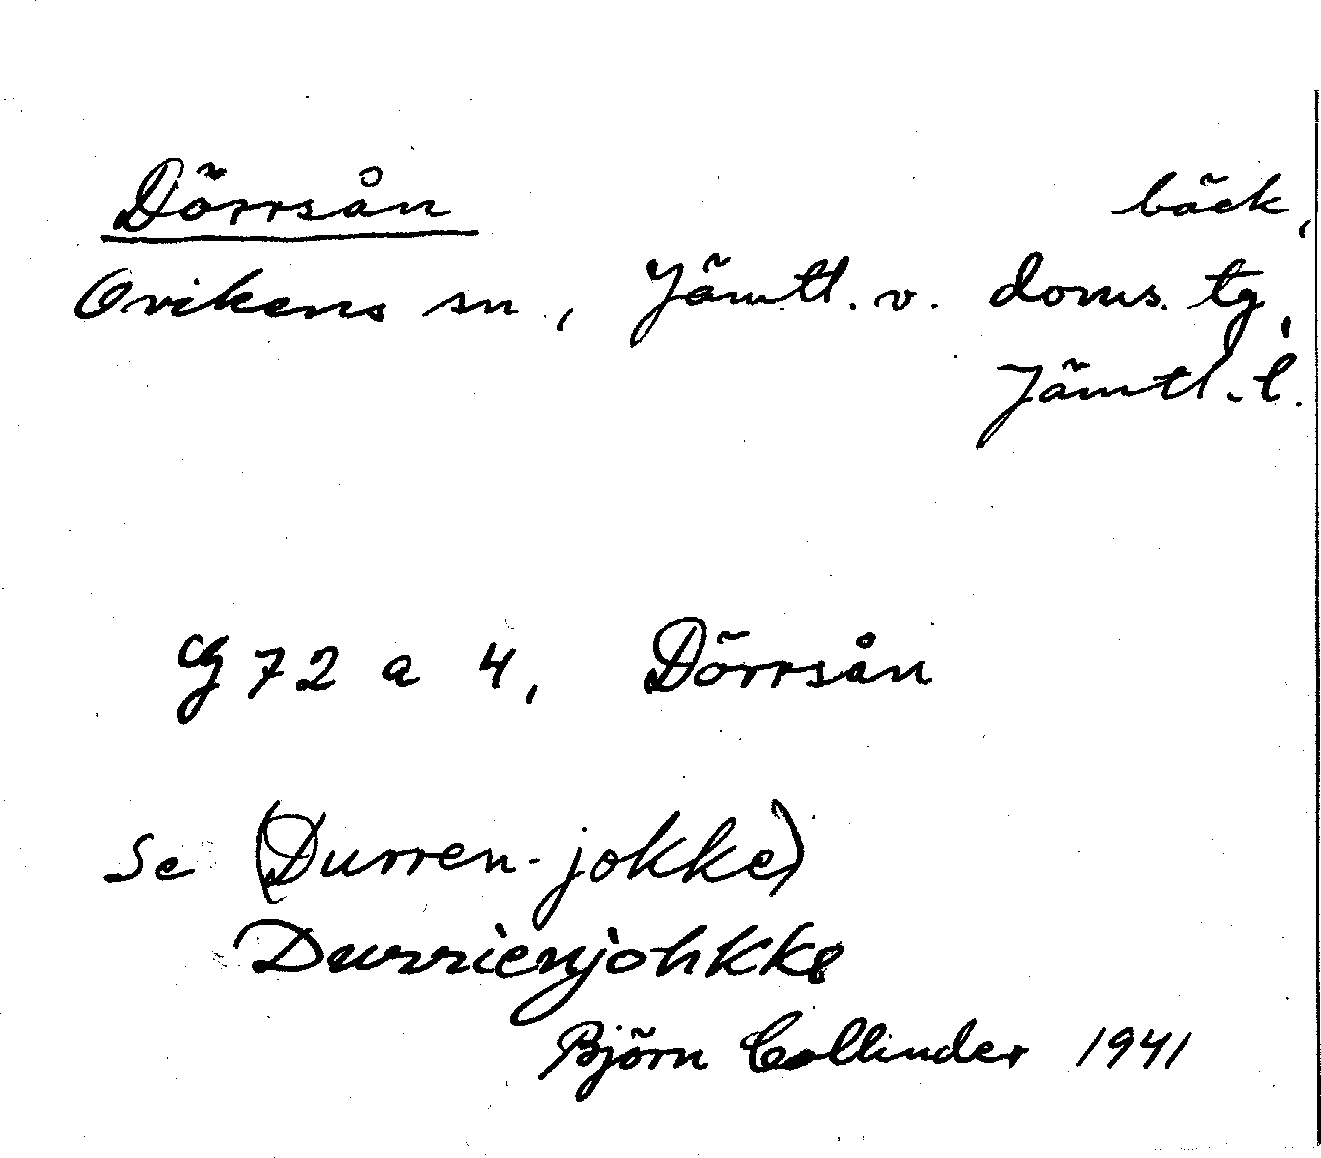 Dörrsån bäck,
Ovikens sn, Jämtl. v. doms. tg,
Jämtl. l.
g 72 a 4, Dörrsån
Se (Durren-jokke)
Durrienjohkke
Björn Collinder 1941